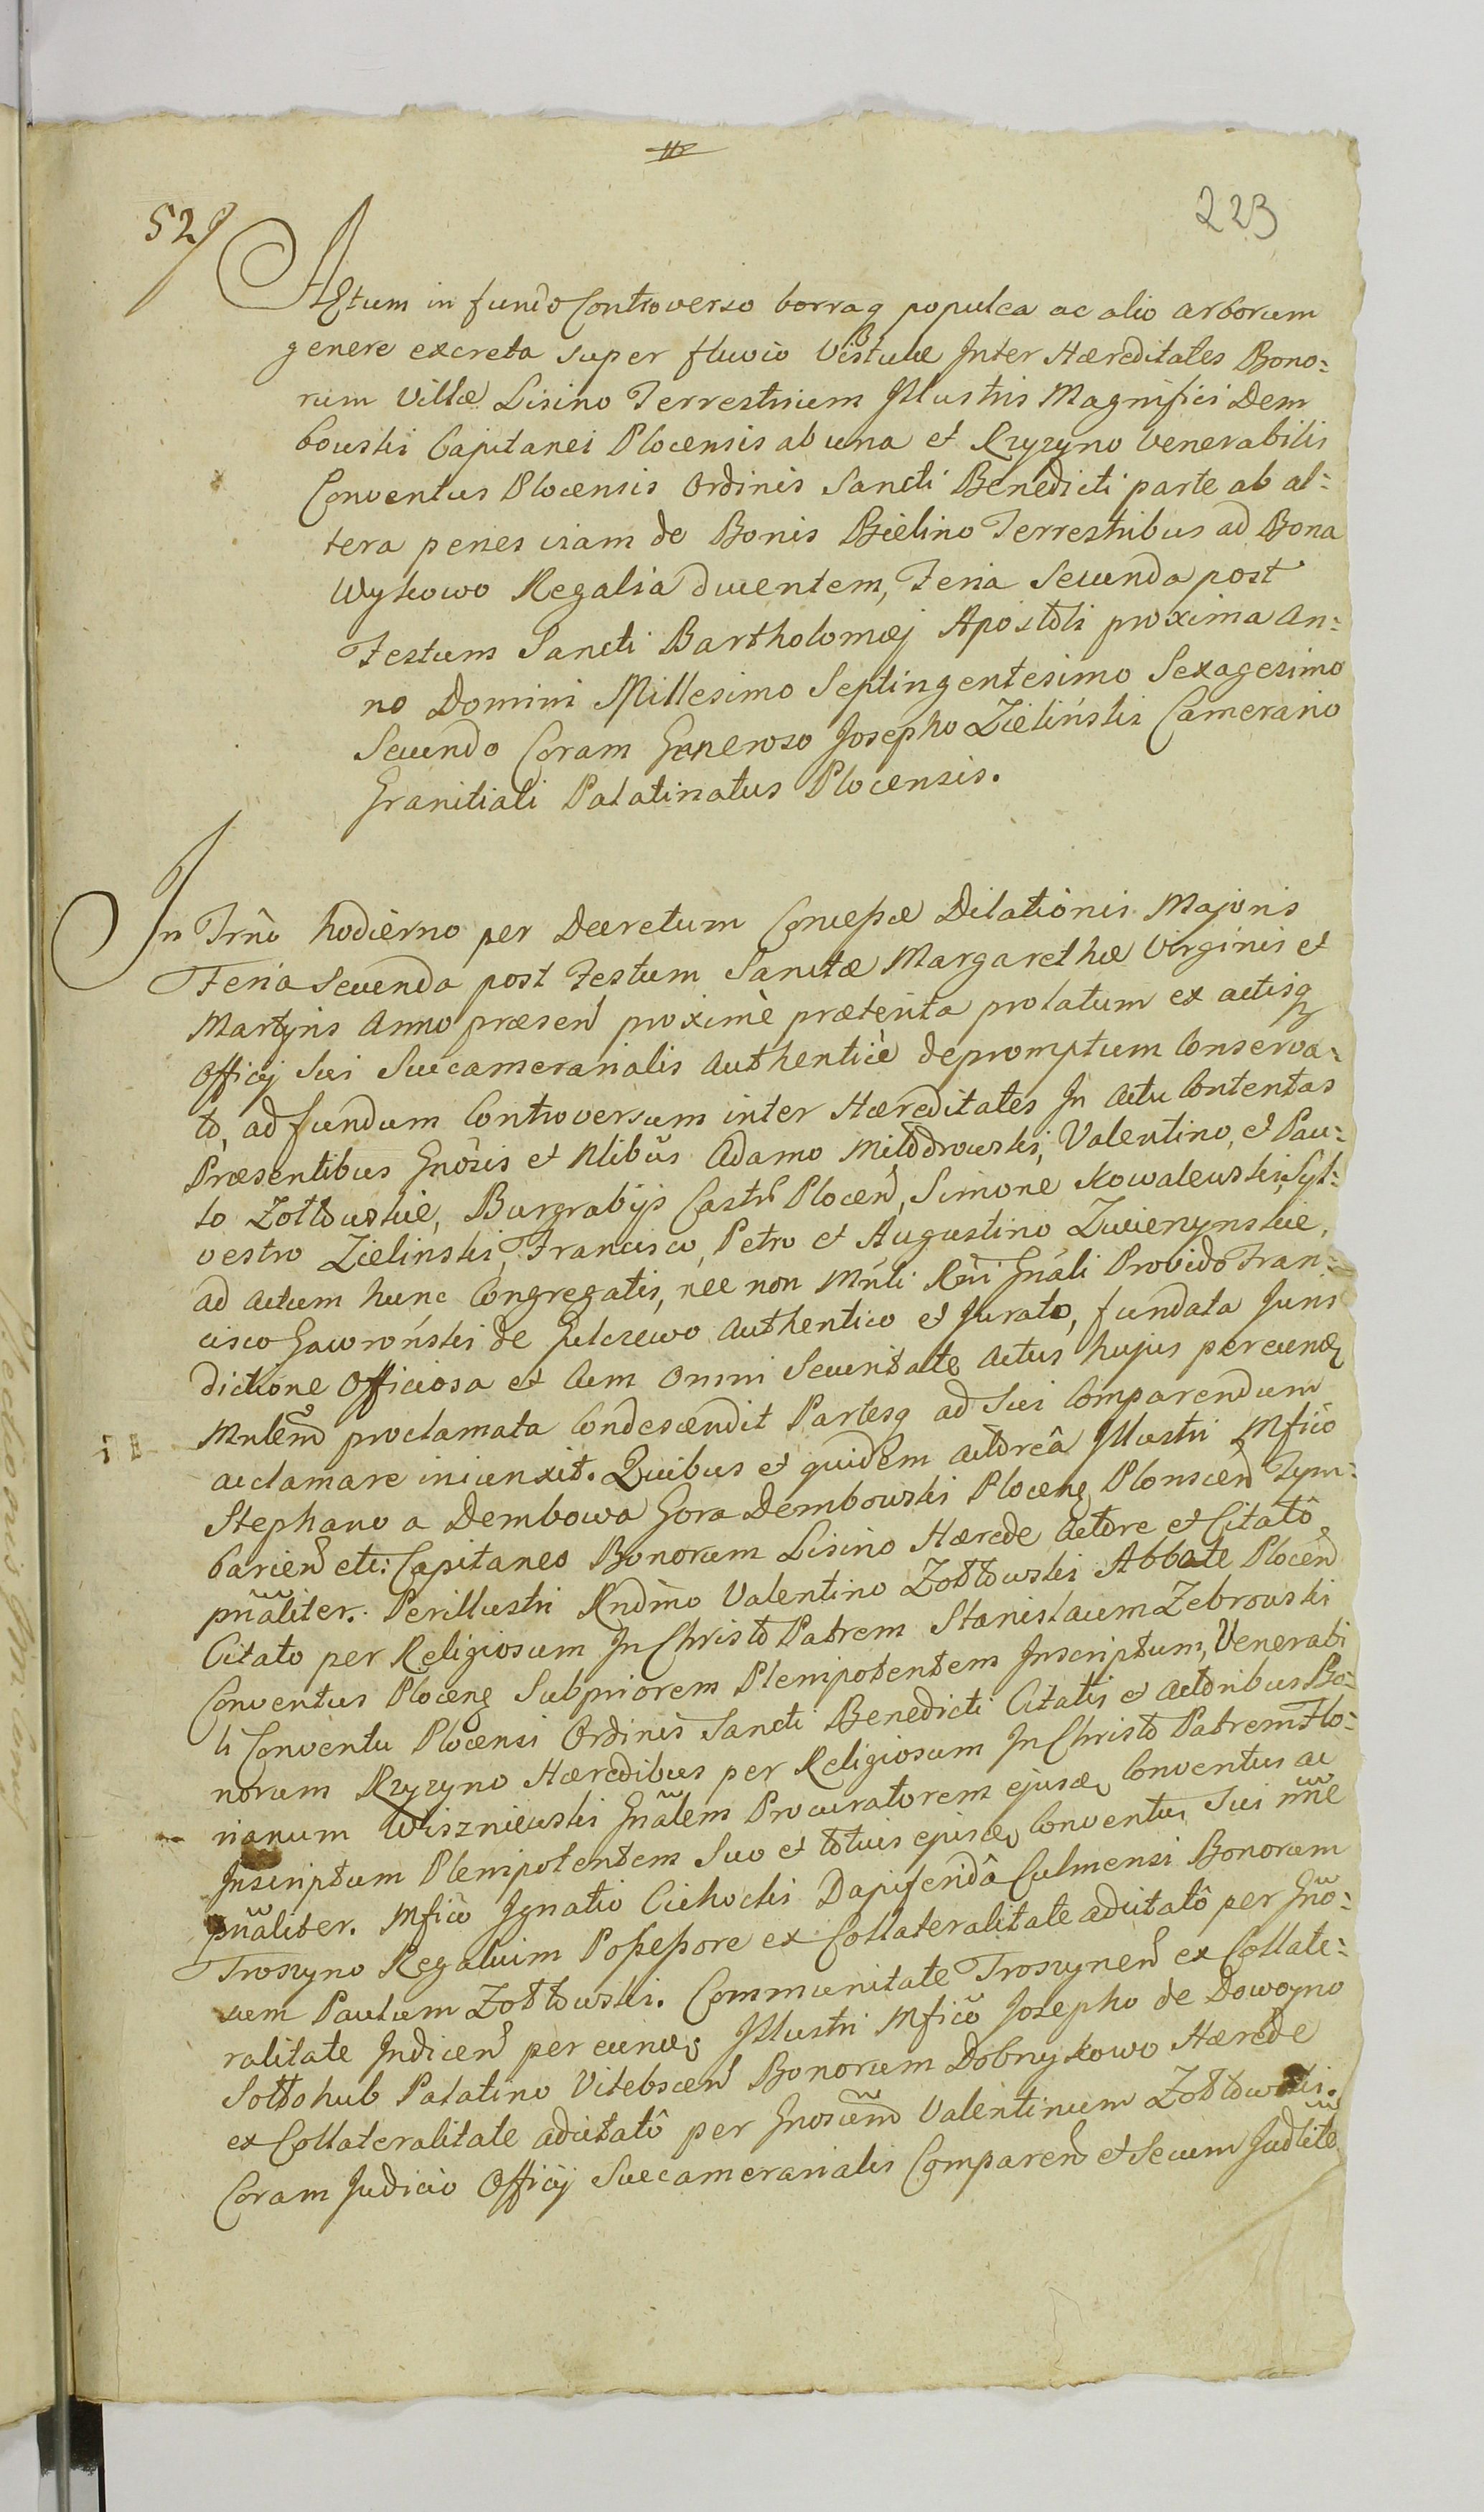 223
52
Actum in fundo Controverso borraq populea ac alio arborum
genere excreta super fluvio Vistulæ Inter Hæreditates Bono=
rum Villæ Lisino Terrestrium Illustris Magnifici Dem
bowski Capitanei Plocensis ab una et Rzyzyno Venerabilis
Conventus Plocensis Ordinis Sancti Benedicti parte ab al=
tera penes viam de Bonis Bielino Terrestribus ad Bona
Wykowo Regalia ducentem, Feria Secunda post
Festum Sancti Bartholomæj Apostoli proxima An=
no Domini Millesimo Septingentesimo Sexagesimo
Secundo Coram Generoso Josepho Zieliński Camerario
Granitiali Palatinatus Plocensis.
In Trno hodierno per Decretum Concessæ Dilationis Majoris
Feria Secunda post Festum Sanctæ Margarethæ Virginis et
Martyris Anno præsen proximè præterita prolatum ex actisq
Officij Sui Succamerarialis Authenticè depromptum Conserva=
to, ad fundum Controversum inter Hæreditates In Actu Contentas
Præsentibus Gnosis et Nlibus Adamo Milodrowski, Valentino, et Pau=
lo Zołtowskie, Burgrabijs Castr Plocen, Simone Kowalewski, Syl=
vestro Zielinski, Francisco, Petro et Augustino Zwierzynskie,
ad actum hunc Congregatis, nec non Mnli Rni Gnali Provido Fran=
cisco Gaworoński de Gulczewo Authentico et Jurato, fundata Juris
dictione Officiosa et Cum Omni Securitate Actus hujus per eund
Mnlem proclamata Condescendit Partesq ad Sui Comparendum
acclamare iniunxit. Quibus et quidem actorea Illustri Mfico
Stephano a Dembowa Gora Dembowski Plocen Plonscen Tym=
barien etc: Capitaneo Bonorum Lisino Hærede Actore et Citato
pnaliter. Perillustri Rndmo Valentino Zołtowski Abbate Plocen
Citato per Religiosum In Christo Patrem Stanislaum Zebrowski
Conventus Plocen Subpriorem Plenipotentem Inscriptum, Venerabi
li Conventu Plocensi Ordinis Sancti Benedicti Citatis et Actoribus Bo=
norum Rzyzyno Hæredibus per Religiosum In Christo Patrem Flo=
rianum Wiszniewski Gnalem Procuratorem ejusd Conventus ac
Inscriptum Plenipotentem Suo et totius ejusd Conventus Sui nne
pnaliter. Mfico Ignatio Cichocki Dapiferida Culmensi Bonorum
Troszyno Regalium Possessore ex Collateralitate adcitato per Gno=
sum Paulum Zołtowski. Communitate Troszynen ex Collate=
ralitate Indicen per eund Illustri Mfico Josepho de Dowoyno
Sołłohub Palatino Vitebscen Bonorum Dobrzykowo Hærede
ex Collateralitate adcitato per Gnosum Valentinum Zołtowski.
Coram Judicio Officij Succamerarialis Comparen et Secum Judlite